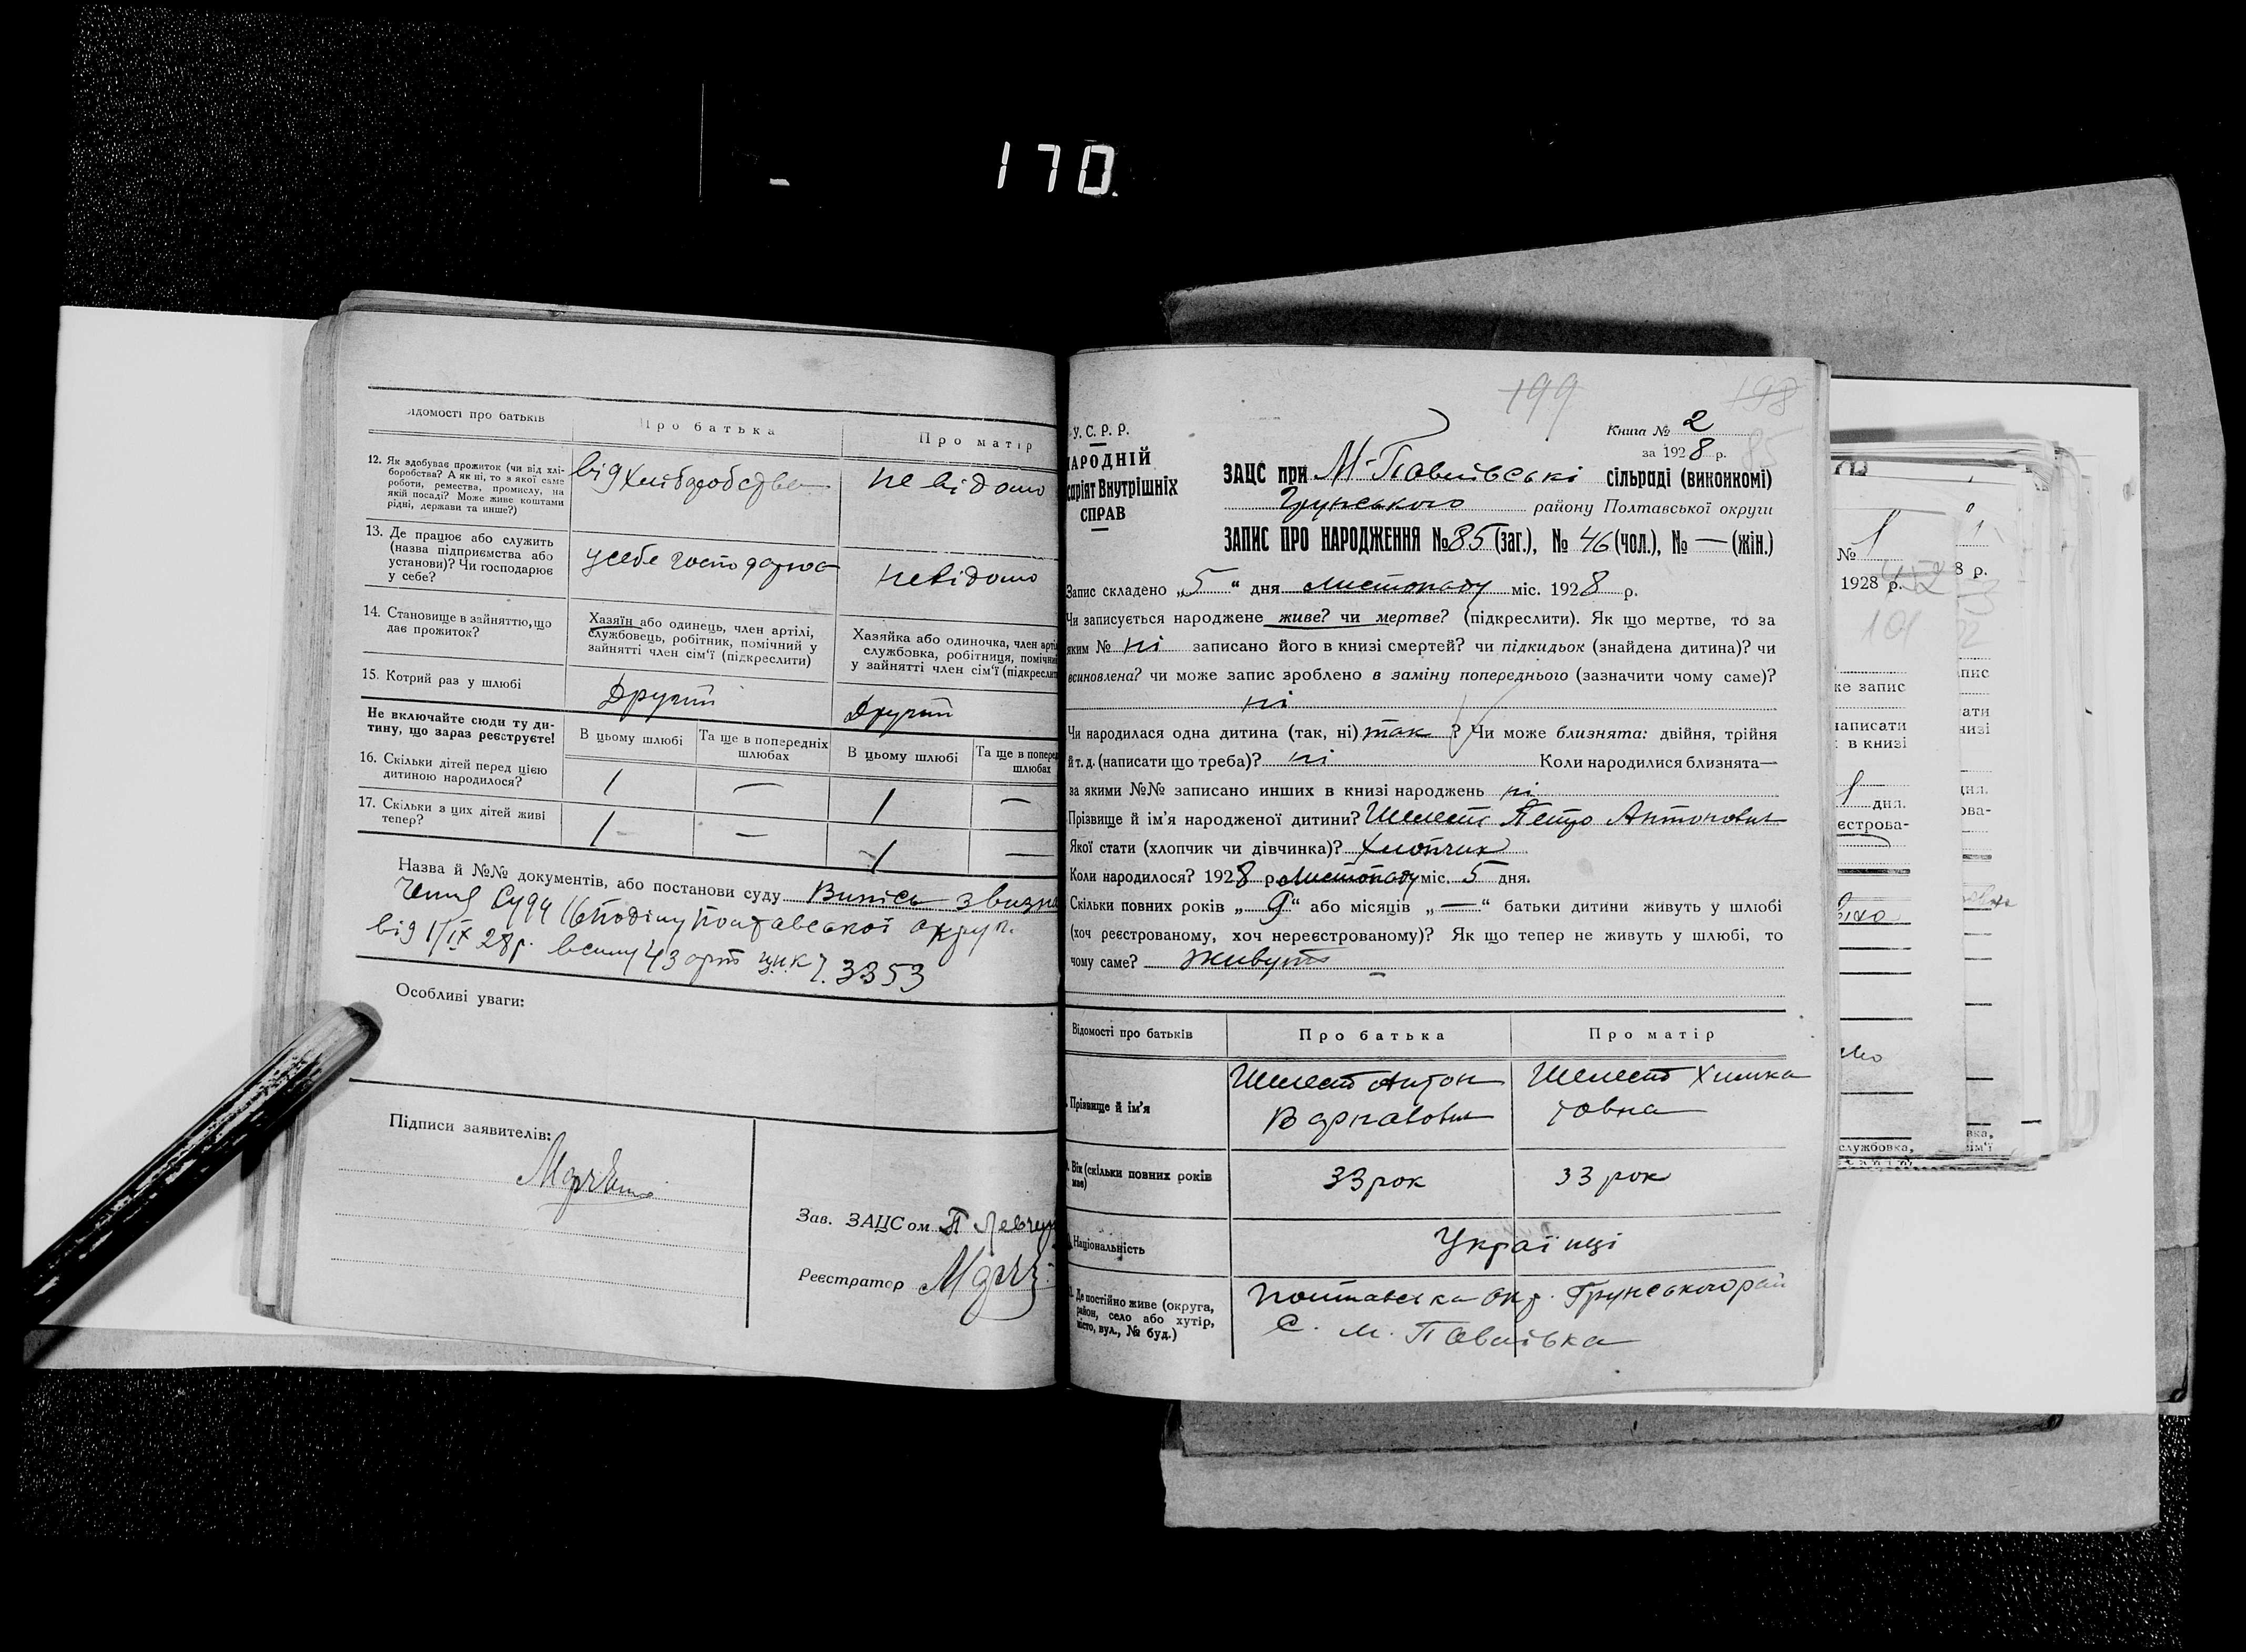 170.
Відомості про батьків
Про батька
Про матір
12. Як здобуває прожиток (чи від хлі-
боробства? А як ні, то з якої саме
роботи, ремества, промислу, на
якій посаді? Може живе коштами
рідні, держави та инше?)
від хліборобства
невідомо
13. Де працює або служить
(назва підприємства або
установи)? Чи господарює
у себе?
у себе господарює
невідомо
14. Становище в зайняттю, що
дає прожиток?
Хазяїн або одинець, член артілі,
службовець, робітник, помічний у
зайнятті член сім'ї (підкреслити)
Хазяйка або одиночка, член арті
службовка, робітниця, помічни
у зайнятті член сім'ї (підкреслит
15. Котрий раз у шлюбі
Другий
Другий
Не включайте сюди ту ди-
тину, що зараз реєструєте!
В цьому шлюбі
Та ще в попередніх
шлюбах
В цьому шлюбі
Та ще в поперед
шлюбах
16. Скільки дітей перед цією
дитиною народилося?
1 — 1 —
17. Скільки з цих дітей живі
тепер?
1 — 1 —
Назва й №№ документів, або постанови суду Випісь з визна
від 1/IX 28 р. 43 арт 3353
Особливі уваги:
Підписи заявителів:
Зав. ЗАЦСом П
Реєстратор
199
198
85
У. С. Р. Р.
НАРОДНІЙ
саріят Внутрішніх
СПРАВ
Книга № 2
за 1928 р.
ЗАЦС при М-Павлівські сільраді (виконкомі)
Грунського району Полтавської округи
ЗАПИС ПРО НАРОДЖЕННЯ № 85 (заг.), № 46 (чол.), № — (жін.)
Запис складено „5“ дня листопаду міс. 1928 р.
Чи записується народжене живе? чи мертве? (підкреслити). Як що мертве, то за
яким № ні записано його в книзі смертей? чи підкидьок (знайдена дитина)? чи
всиновлена? чи може запис зроблено в заміну попереднього (зазначити чому саме)?
ні
Чи народилася одна дитина (так, ні) так ? Чи може близнята: двійня, трійня
й т. д. (написати що треба)? ні Коли народилися близнята—
за якими №№ записано инших в книзі народжень ні
Прізвище й ім'я народженої дитини? Шелест Петро Антонович
Якої стати (хлопчик чи дівчинка)? Хлопчик
Коли народилося? 1928 р. Листопаду міс. 5 дня.
Скільки повних років „9“ або місяців „—“ батьки дитини живуть у шлюбі
(хоч реєстрованому, хоч нереєстрованому)? Як що тепер не живуть у шлюбі, то
чому саме? Живуть
Відомості про батьків
Про батька
Про матір
Прізвище й ім'я
Шелест Антон
Шелест Химка
Вік (скільки повних років
має)
33 рок
33 рок
Національність
Українці
Де постійно живе (округа,
район, село або хутір,
місто, вул., № буд.)
Полтавська окр. Грунського рай
С. М. Павлівка
№ 1
1928 р.
8 р.
101